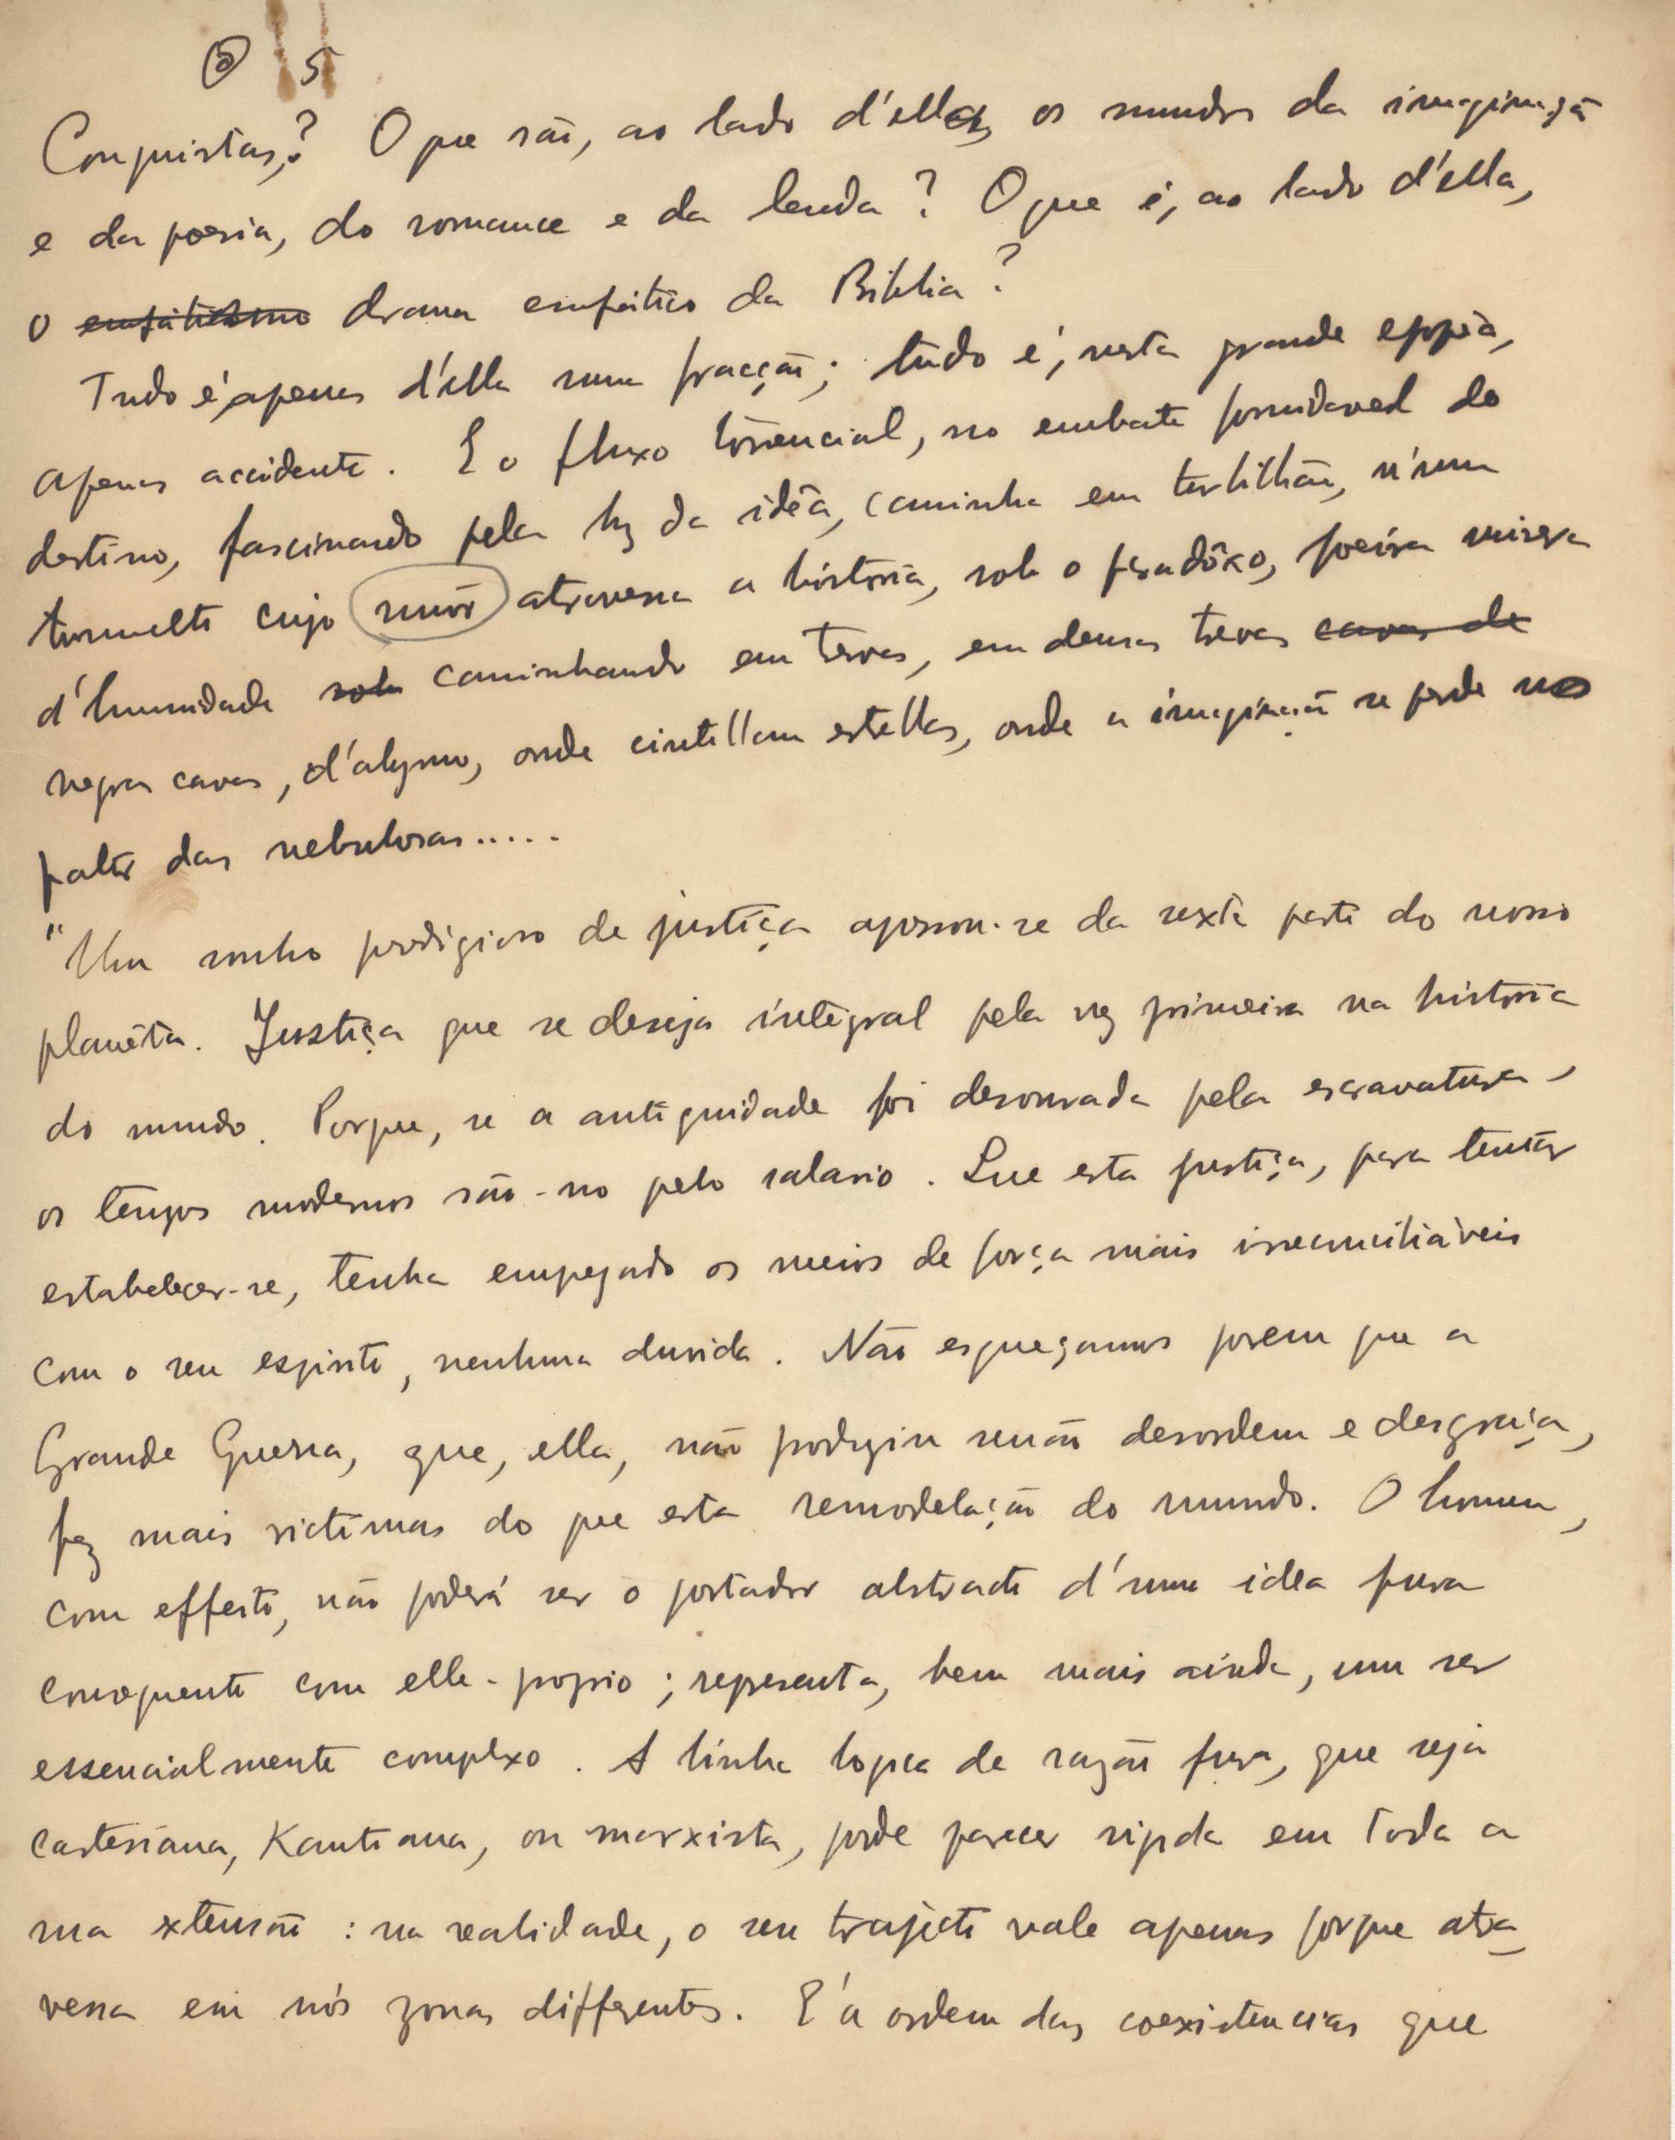 5
Conquistas? O que são, ao lado d'ellas, os mundos da imaginação
e da poesia, do romance e da lenda? O que é, ao lado d'ella,
o emfatismo drama emfático da Biblia?
Tudo é apenas d'ella uma fracção; tudo é, nesta grande epopéa,
apenas accidente. E o fluxo torrencial, no embate formidavel do
destino, fascinando pela luz da idêa, caminha em turbilhão, n'um
tumulto cujo atravessa a historia, sob o paradôxo, poeira misera
d'humidade sob caminhando em trevas, em densas trevas cavas de
negras cavas, d'abysmo, onde cintillam estrellas, onde a imaginação se perde no
palor das nebulosas.....
"Um sonho prodigioso de justiça apossou-se da sexta parte do nosso
planêta. Justiça que se deseja integral pela vez primeira na historia
do mundo. Porque, se a antiguidade foi desonrada pela escravatura,
os tempos modernos são-no pelo salario. Que esta justiça, para tentar
estabelecer-se, tenha empregado os meios de força mais irreconciliáveis
com o seu espirito, nenhuma duvida. Não esqueçamos porem que a
Grande Guerra, que, ella, não produziu senão desordem e desgraça,
fez mais victimas do que esta remodelação do mundo. O homem,
com effeito, não poderá ser o portador abstracto d'uma idea pura
consequente com elle-proprio; representa, bem mais ainda, um ser
essencialmente complexo. A linha logica de razão pura, que seja
cartesiana, Kantiana, ou marxista, pode parecer rigida em toda a
sua extensão: na realidade, o seu trajecto vale apenas porque atra_
vessa em nós zonas differentes. E' a ordem das coexistencias que